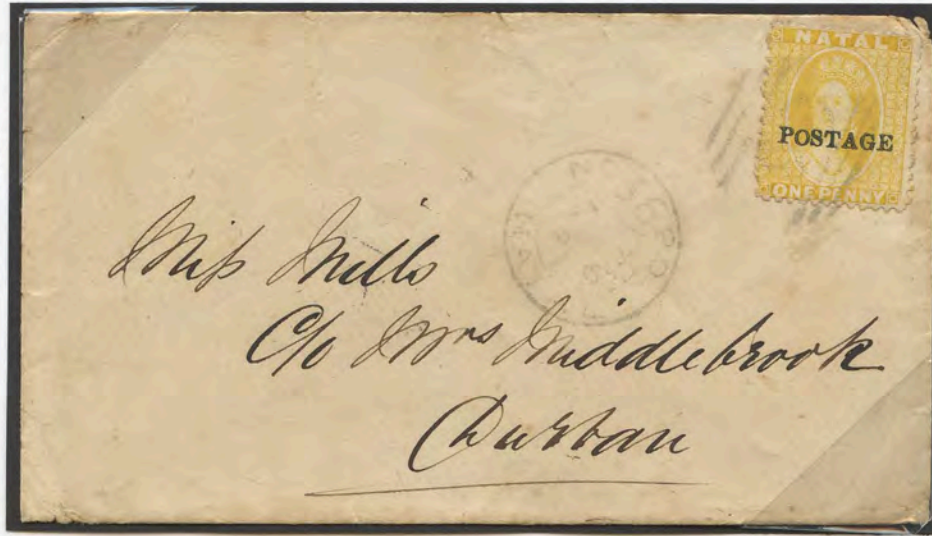 NATAL
POSTAGE
ONE PENNY
Miss Mills
C/o Mrs Middlebrook
Durban